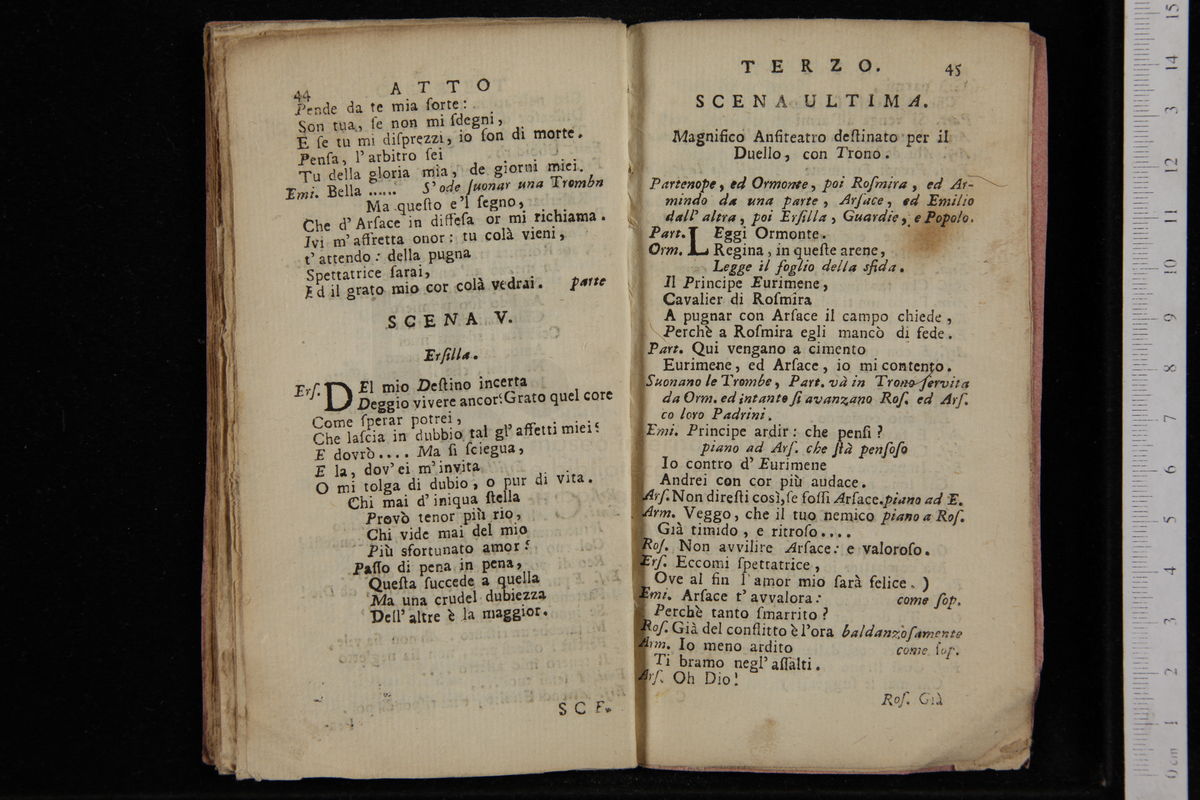 44
ATTO
Pende da te mia ſorte:
Son tua, ſe non mi ſdegni,
E ſe tu mi diſprezzi, io ſon di morte.
Penſa, l'arbitro ſei
Tu della gloria mia, de giorni miei.
Emi. Bella ...... S'ode ſuonar una Trombn
Ma queſto e'l ſegno,
Che d'Arſace in difſeſa or mi richiama.
Ivi m'affretta onor: tu colà vieni,
t'attendo: della pugna
Spettatrice ſarai,
Ed il grato mio cor colà vedrai. parte
SCENA V.
Erſilla.
Erſ. DEl mio Deſtino incerta
Deggio vivere ancor? Grato quel core
Come ſperar potrei,
Che laſcia in dubbio tal gl'affetti miei?
E dovrò.... Ma ſi ſciegua,
E la, dov'ei m'invita
O mi tolga di dubio, o pur di vita.
Chi mai d'iniqua ſtella
Provò tenor più rio,
Chi vide mai del mio
Più sfortunato amor?
Paſſo di pena in pena,
Queſta ſuccede a quella
Ma una crudel dubiezza
Dell'altre è la maggior.
SCE.
TERZO.
45
SCENA ULTIMA.
Magnifico Anfiteatro deſtinato per il
Duello, con Trono.
Partenope, ed Ormonte, poi Roſmira, ed Ar-
mindo da una parte, Arſace, ed Emilio
dall'altra, poi Erſilla, Guardie, e Popolo.
Part. LEggi Ormonte.
Orm. Regina, in queſte arene,
Legge il foglio della sfida.
Il Principe Eurimene,
Cavalier di Roſmira
A pugnar con Arſace il campo chiede,
Perchè a Roſmira egli mancò di fede.
Part. Qui vengano a cimento
Eurimene, ed Arſace, io mi contento.
Suonano le Trombe, Part. và in Trono ſervita
da Orm. ed intanto ſi avanzano Roſ. ed Arſ.
co loro Padrini.
Emi. Principe ardir: che penſi?
piano ad Arſ. che ſtà penſoſo
Io contro d'Eurimene
Andrei con cor più audace.
Arſ. Non direſti così, ſe foſſi Arſace. piano ad E.
Arm. Veggo, che il tuo nemico piano a Roſ.
Già timido, e ritroſo....
Roſ. Non avvilire Arſace: e valoroſo.
Erſ. Eccomi ſpettatrice,
Ove al fin l'amor mio ſarà felice. )
Emi. Arſace t'avvalora: come ſop.
Perchè tanto ſmarrito?
Roſ. Già del conflitto è l'ora baldanzoſamente
Arm. Io meno ardito come ſop.
Ti bramo negl'aſſalti.
Arſ. Oh Dio!
Roſ. Già